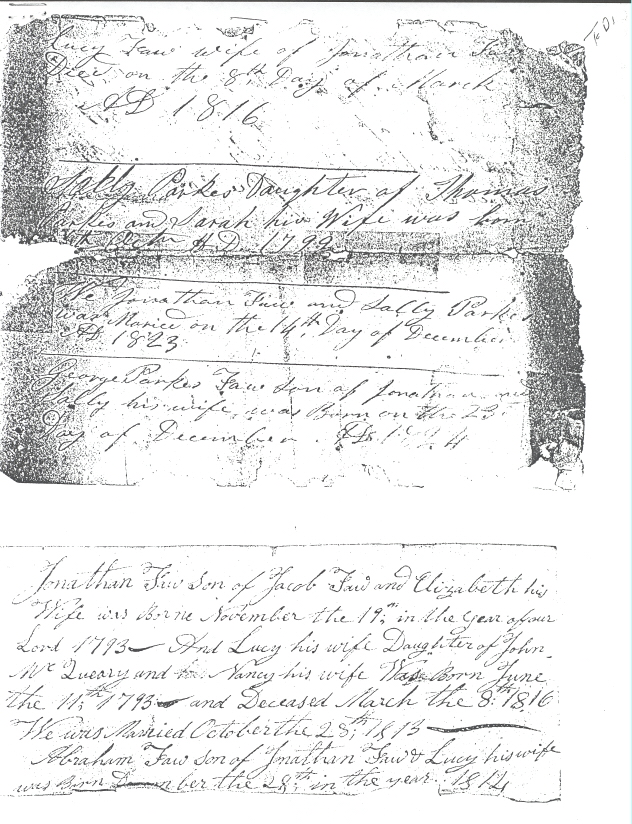 Lucy Faw wife of Jonathan Faw
Dec'd on the 8th Day of March
AD 1816
Sally Parkes Daughter of Thomas
Parkes and Sarah his Wife was born
AD 1799
We Jonathan Faw and Sally Parkes
was Maried on the 14th Day of December
AD 1823
George Parkes Faw son of Jonathan and
Sally his wife was Born on the 23
Day of December
Jonathan Faw son of Jacob Faw and Elizabeth his
Wife was Borne November the 19th in the Year of our
Lord 1793 And Lucy his wife Daughter of John
McQueary and Nancy his wife Was Born June
the 11th 1793 and Deceased March the 8th 1816
We was Married October the 28th 1813
Abraham Faw son of Jonathan Faw & Lucy his wife
was Born the 28th in the year 1814